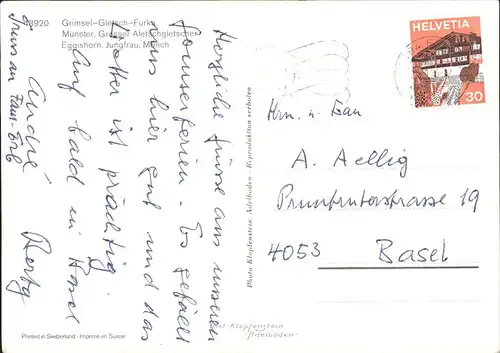 38920 Grimsel-Gletsch-Furka
Münster, Grosser Aletschgletscher
Eggishorn, Jungfrau, Mönch
Herzliche Grüsse aus unseren
Sommerferien. Es gefällt
uns hier gut und das
Wetter ist prächtig.
Auf bald in Basel
André
Gruss an Fam.
HELVETIA
30
Hrn. u. Frau
A. Aellig
Pruntruterstrasse 19
4053 Basel
Photo Klopfenstein, Adelboden - Reproduktion verboten
Printed in Switzerland - Imprimé en Suisse
Klopfenstein
"Adelboden"